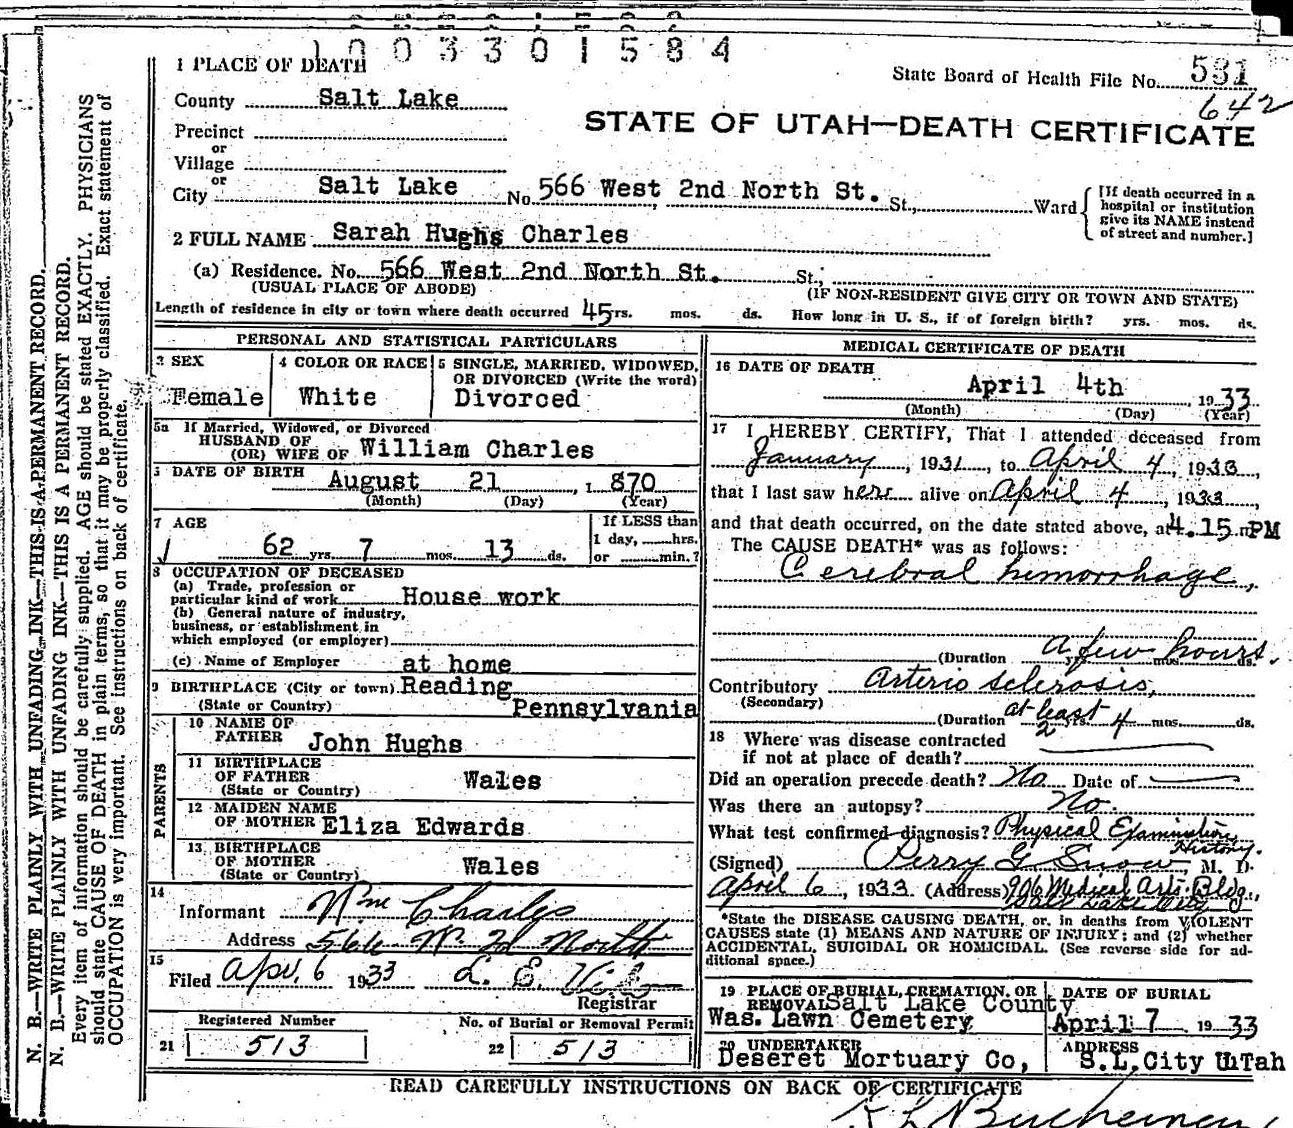 1003301584
1 PLACE OF DEATH
State Board of Health File No. 581
642
County Salt Lake
STATE OF UTAH—DEATH CERTIFICATE
Precinct
or
Village
or
City Salt Lake No. 566 West 2nd North St. St., Ward
[If death occurred in a
hospital or institution
give its NAME instead
of street and number.]
2 FULL NAME Sarah Hughs Charles
(a) Residence. No. 566 West 2nd North St. St.,
(USUAL PLACE OF ABODE) (IF NON-RESIDENT GIVE CITY OR TOWN AND STATE)
Length of residence in city or town where death occurred 45 yrs. mos. ds. How long in U. S., if of foreign birth? yrs. mos. ds.
PERSONAL AND STATISTICAL PARTICULARS
3 SEX
Female
4 COLOR OR RACE
White
5 SINGLE, MARRIED, WIDOWED,
OR DIVORCED (Write the word)
Divorced
5a If Married, Widowed, or Divorced
HUSBAND OF
(OR) WIFE OF William Charles
DATE OF BIRTH August 21, 1870
(Month) (Day) (Year)
7 AGE
62 yrs. 7 mos. 13 ds.
If LESS than
1 day, hrs.
or min.?
8 OCCUPATION OF DECEASED
(a) Trade, profession or
particular kind of work House work
(b) General nature of industry,
business, or establishment in
which employed (or employer)
(c) Name of Employer at home
9 BIRTHPLACE (City or town) Reading
(State or Country) Pennsylvania
PARENTS
10 NAME OF
FATHER John Hughs
11 BIRTHPLACE
OF FATHER Wales
(State or Country)
12 MAIDEN NAME
OF MOTHER Eliza Edwards
13 BIRTHPLACE
OF MOTHER Wales
(State or Country)
14
Informant Wm Charles
Address 566 W. 2d North
15
Filed Apr. 6 1933 L. E.
Registrar
Registered Number
21 513
No. of Burial or Removal Permit
22 513
MEDICAL CERTIFICATE OF DEATH
16 DATE OF DEATH
April 4th, 1933
(Month) (Day) (Year)
17 I HEREBY CERTIFY, That I attended deceased from
January, 1931, to April 4, 1933,
that I last saw her alive on April 4, 1933,
and that death occurred, on the date stated above, at 4.15 m PM
The CAUSE DEATH* was as follows:
Cerebral hemorrhage,
(Duration a few hours. yrs. mos. ds.
Contributory Arterio sclerosis,
(Secondary)
(Duration at least 2 yrs. 4 mos. ds.
18 Where was disease contracted
if not at place of death?
Did an operation precede death? No Date of
Was there an autopsy? No.
What test confirmed diagnosis? Physical Examination,
History.
(Signed) Perry G Snow M. D.
April 6, 1933 (Address) 906 Medical Arts Bldg.,
Salt Lake City
*State the DISEASE CAUSING DEATH, or, in deaths from VIOLENT
CAUSES state (1) MEANS AND NATURE OF INJURY; and (2) whether
ACCIDENTAL, SUICIDAL OR HOMICIDAL. (See reverse side for ad-
ditional space.)
19 PLACE OF BURIAL, CREMATION, OR
REMOVAL Salt Lake County
Was. Lawn Cemetery
DATE OF BURIAL
April 7 1933
20 UNDERTAKER
Deseret Mortuary Co,
ADDRESS
S.L.City UTah
READ CAREFULLY INSTRUCTIONS ON BACK OF CERTIFICATE
N. B.—WRITE PLAINLY WITH UNFADING INK—THIS IS A PERMANENT RECORD.
N. B.—WRITE PLAINLY WITH UNFADING INK—THIS IS A PERMANENT RECORD.
Every item of information should be carefully supplied. AGE should be stated EXACTLY. PHYSICIANS
should state CAUSE OF DEATH in plain terms, so that it may be properly classified. Exact statement of
OCCUPATION is very important. See instructions on back of certificate.